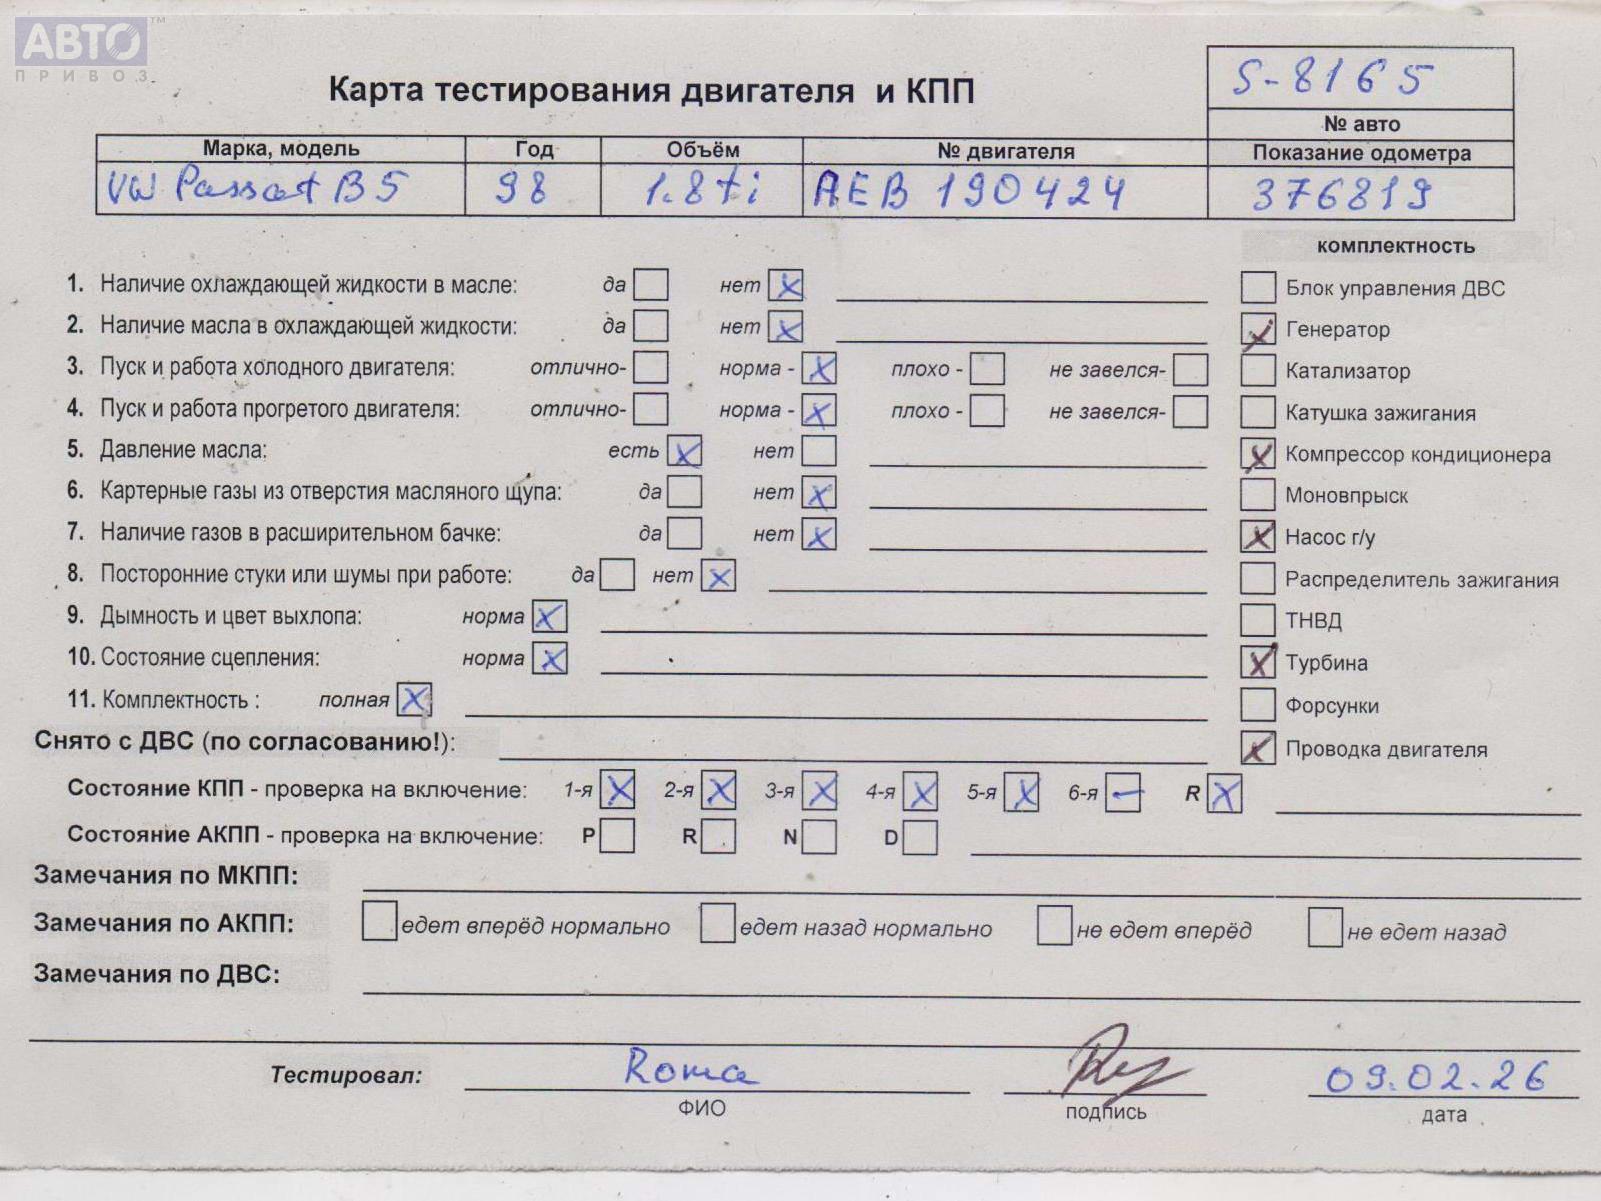 АВТО™
ПРИВОЗ
S-8165
Карта тестирования двигателя и КПП
№ авто
Марка, модель Год Объём № двигателя Показание одометра
VW Passat B5 98 1.8ti AEB 190424 376819
комплектность
1. Наличие охлаждающей жидкости в масле: да нет X Блок управления ДВС
2. Наличие масла в охлаждающей жидкости: да нет X X Генератор
3. Пуск и работа холодного двигателя: отлично- норма - X плохо - не завелся- Катализатор
4. Пуск и работа прогретого двигателя: отлично- норма - X плохо - не завелся- Катушка зажигания
5. Давление масла: есть X нет X Компрессор кондиционера
6. Картерные газы из отверстия масляного щупа: да нет X Моновпрыск
7. Наличие газов в расширительном бачке: да нет X X Насос г/у
8. Посторонние стуки или шумы при работе: да нет X Распределитель зажигания
9. Дымность и цвет выхлопа: норма X ТНВД
10. Состояние сцепления: норма X X Турбина
11. Комплектность : полная X Форсунки
Снято с ДВС (по согласованию!): X Проводка двигателя
Состояние КПП - проверка на включение: 1-я X 2-я X 3-я X 4-я X 5-я X 6-я – R X
Состояние АКПП - проверка на включение: P R N D
Замечания по МКПП:
Замечания по АКПП: едет вперёд нормально едет назад нормально не едет вперёд не едет назад
Замечания по ДВС:
Тестировал: Roma 09.02.26
ФИО подпись дата